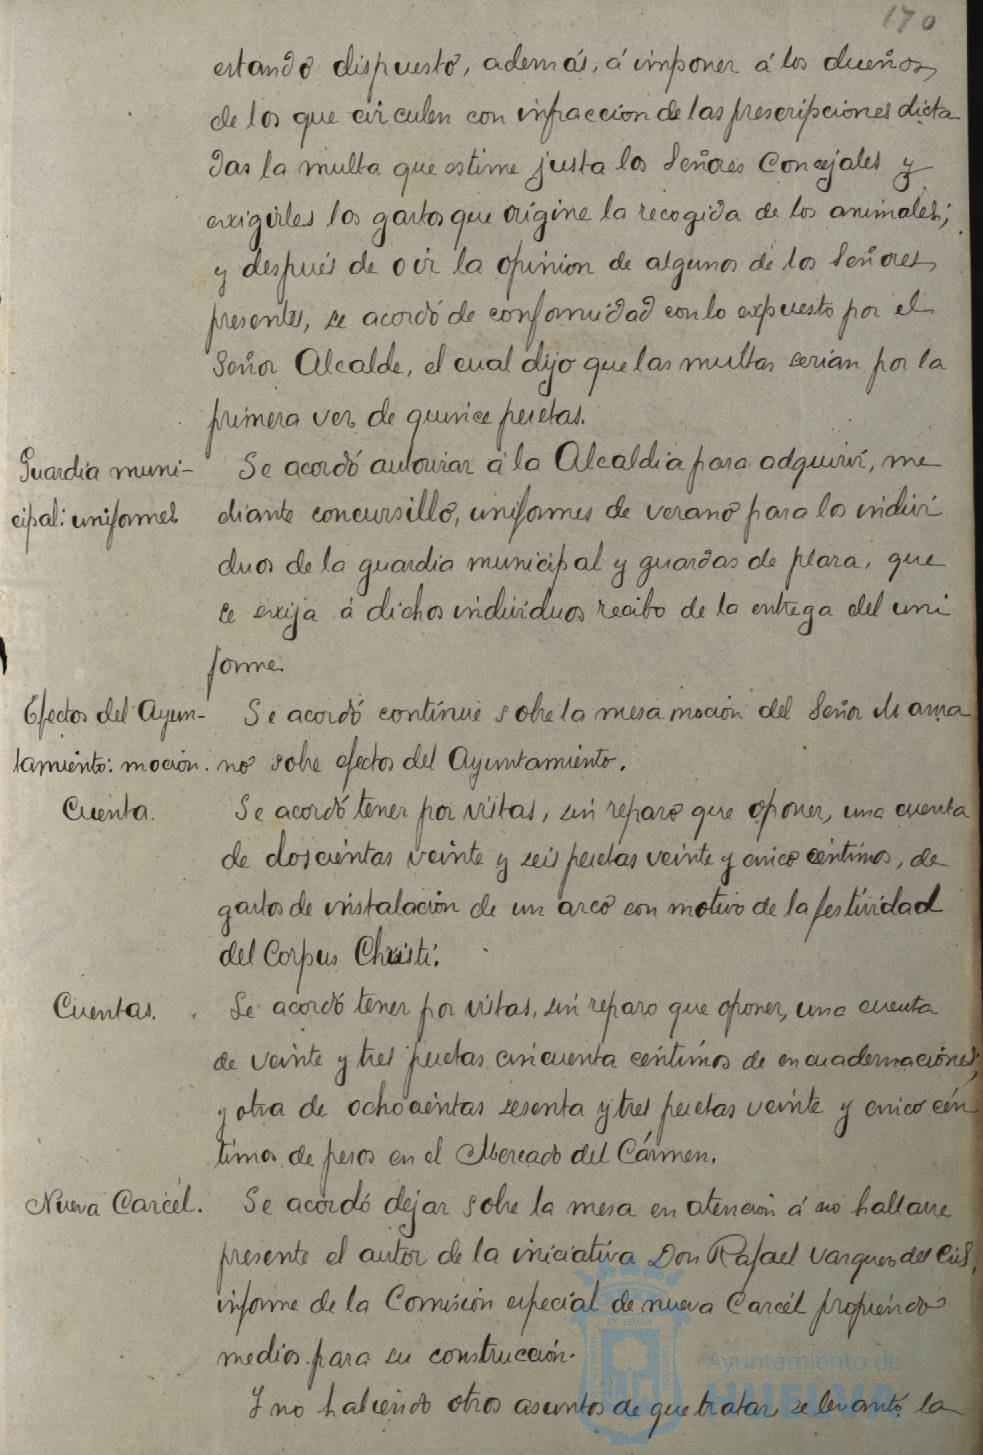 170
estando dispuesto, además, á imponer á los dueños
de los que circulen con infraccion de las prescripciones dicta
das la multa que estime justa los Señores Concejales y
exigirles los gastos que origine la recogida de los animales;
y después de oir la opinion de algunos de los Señores
presentes, se acordó de conformidad con lo expuesto por el
Señor Alcalde, el cual dijo que las multas serian por la
primera vez de quince pesetas.
Guardia muni-
cipal: uniformes
Se acordó autorizar á la Alcaldia para adquirir, me
diante concursillo, uniformes de verano para los indivi
duos de la guardia municipal y guardas de plaza, que
se exija á dichos individuos recibo de la entrega del uni
forme.
Efectos del Ayun-
tamiento: mocion.
Se acordó continúe sobre la mesa moción del Señor Mazna
no sobre efectos del Ayuntamiento.
Cuenta.
Se acordó tener por vistas, sin reparo que oponer, una cuenta
de doscientas veinte y seis pesetas veinte y cinco centimos, de
gastos de instalación de un arco con motivo de la festividad
del Corpus Christi.
Cuentas.
Se acordó tener por vistas, sin reparo que oponer, una cuenta
de veinte y tres pesetas cincuenta centimos de encuadernaciones,
y otra de ochocientas sesenta y tres pesetas veinte y cinco cén
timos de pesos en el Mercado del Cármen.
Nueva Carcel.
Se acordó dejar sobre la mesa en atención á no hallarse
presente el autor de la iniciativa Don Rafael Vazquez del Cid,
informe de la Comisión especial de nueva Carcel propiendo
medios para su construcción.
Y no habiendo otros asuntos de que tratar, se levantó la
Ayuntamiento de
HUELVA